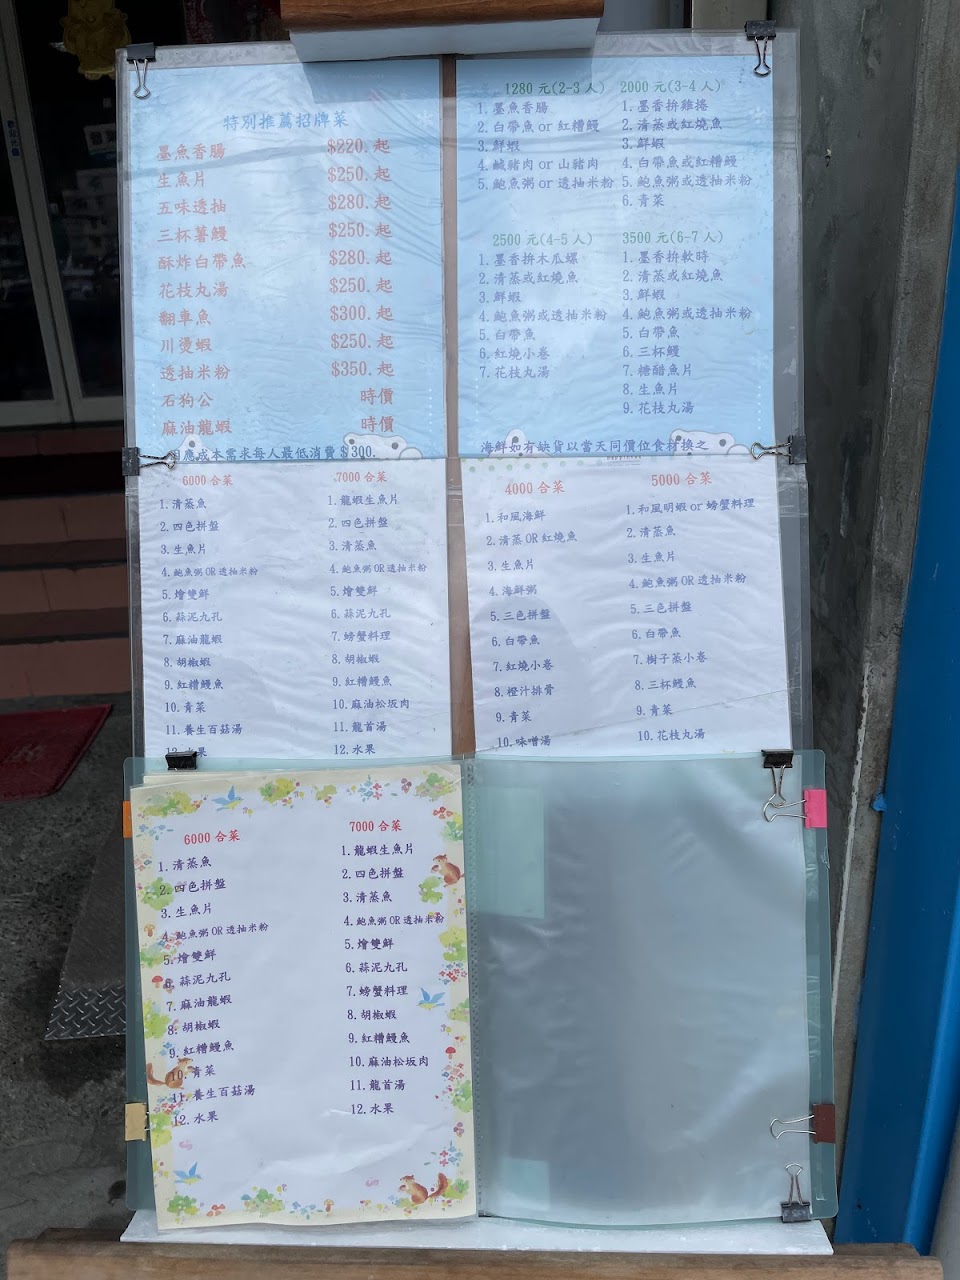 特別推薦招牌菜
墨魚香腸 $220.起
生魚片 $250.起
五味透抽 $280.起
三杯薯鰻 $250.起
酥炸白帶魚 $280.起
花枝丸湯 $250.起
翻車魚 $300.起
川燙蝦 $250.起
透抽米粉 $350.起
石狗公 時價
麻油龍蝦 時價
因應成本需求每人最低消費$300.
1280 元(2-3 人)
1. 墨魚香腸
2. 白帶魚 or 紅糟鰻
3. 鮮蝦
4. 鹹豬肉 or 山豬肉
5. 鮑魚粥 or 透抽米粉
2000 元(3-4 人)
1. 墨香拼雞捲
2. 清蒸或紅燒魚
3. 鮮蝦
4. 白帶魚或紅糟鰻
5. 鮑魚粥或透抽米粉
6. 青菜
2500 元(4-5 人)
1. 墨香拼木瓜螺
2. 清蒸或紅燒魚
3. 鮮蝦
4. 鮑魚粥或透抽米粉
5. 白帶魚
6. 紅燒小卷
7. 花枝丸湯
3500 元(6-7 人)
1. 墨香拼軟時
2. 清蒸或紅燒魚
3. 鮮蝦
4. 鮑魚粥或透抽米粉
5. 白帶魚
6. 三杯鰻
7. 糖醋魚片
8. 生魚片
9. 花枝丸湯
海鮮如有缺貨以當天同價位食材換之
6000 合菜
1. 清蒸魚
2. 四色拼盤
3. 生魚片
4. 鮑魚粥 OR 透抽米粉
5. 燴雙鮮
6. 蒜泥九孔
7. 麻油龍蝦
8. 胡椒蝦
9. 紅糟鰻魚
10. 青菜
11. 養生百菇湯
12. 水果
7000 合菜
1. 龍蝦生魚片
2. 四色拼盤
3. 清蒸魚
4. 鮑魚粥 OR 透抽米粉
5. 燴雙鮮
6. 蒜泥九孔
7. 螃蟹料理
8. 胡椒蝦
9. 紅糟鰻魚
10. 麻油松坂肉
11. 龍首湯
12. 水果
4000 合菜
1. 和風海鮮
2. 清蒸 OR 紅燒魚
3. 生魚片
4. 海鮮粥
5. 三色拼盤
6. 白帶魚
7. 紅燒小卷
8. 橙汁排骨
9. 青菜
10. 味噌湯
5000 合菜
1. 和風明蝦 or 螃蟹料理
2. 清蒸魚
3. 生魚片
4. 鮑魚粥 OR 透抽米粉
5. 三色拼盤
6. 白帶魚
7. 樹子蒸小卷
8. 三杯鰻魚
9. 青菜
10. 花枝丸湯
6000 合菜
1. 清蒸魚
2. 四色拼盤
3. 生魚片
4. 鮑魚粥 OR 透抽米粉
5. 燴雙鮮
6. 蒜泥九孔
7. 麻油龍蝦
8. 胡椒蝦
9. 紅糟鰻魚
10. 青菜
11. 養生百菇湯
12. 水果
7000 合菜
1. 龍蝦生魚片
2. 四色拼盤
3. 清蒸魚
4. 鮑魚粥 OR 透抽米粉
5. 燴雙鮮
6. 蒜泥九孔
7. 螃蟹料理
8. 胡椒蝦
9. 紅糟鰻魚
10. 麻油松坂肉
11. 龍首湯
12. 水果